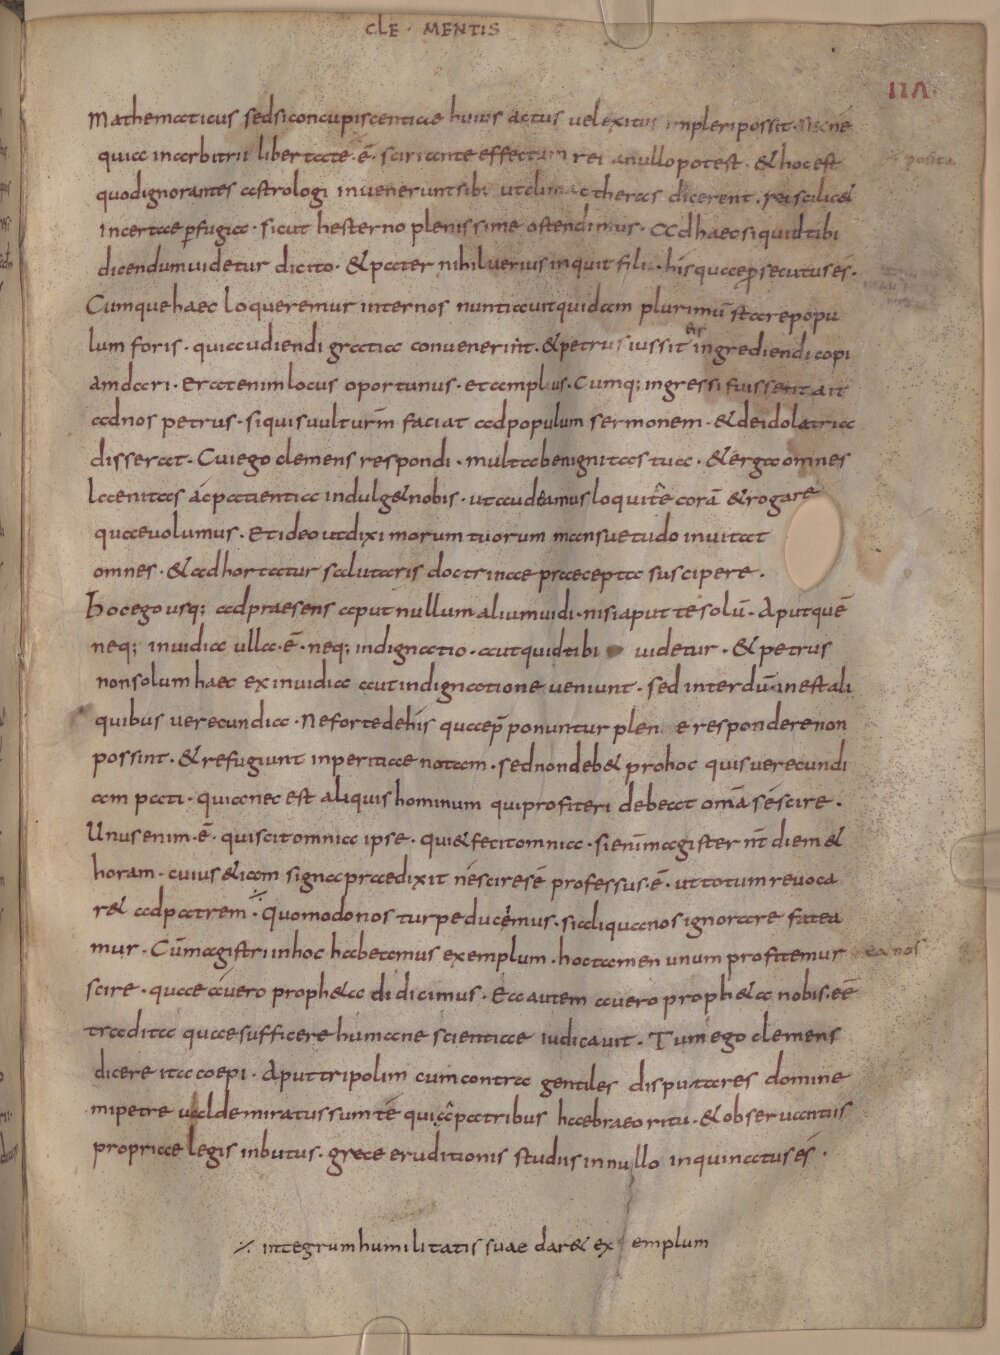 CLE · MENTIS
mathematicus sedsiconcupiscentiae huius actus velexitus impleripossit · necne
quia inarbitrii libertate · ē · scirianteeffectum rei anullopotest · &hocest
posita
quodignorantes astrologi inveneruntsibi utclimactheras dicerent · reiscilic&
incertae ꝑfugia · sicut hesterno plenissime ostendimus · Adhaecsiquidtibi
dicendumuidetur dicito · &pater nihilverius inquit fili · hisquaeꝑsecutusés ·
Cumquehaec loqueremur internos nuntiauitquidam plurimū starepopu
lum foris · quiaudiendi gratia convenerint · &petrus iussit eis ingrediendicopi
amdari · Eratenimlocus oportunus · etamplus · Cumq; ingressi fuissent ait
adnos petrus · siquisvult urm̄ faciat adpopulum sermonem · &deidolatria
disserat · Cuiego clemens respondi · multabenignitastua · &erga omnes
laenitas ácpatientia indulg&nobis · utaudeamusloquite corā &rogare
quaevolumus · Etideoutdixi morum tuorum mansuetudo invitat
omnes · &adhortatur salutaris doctrinae praecepta suscipere ·
Hocegousq; adpraesens aput nullum aliumuidi · nisiaput te solū · Aputquē
neq; invidia ulla · ē · neq; indignatio · autquidtibi uidetur · &petrus
nonsolum haec exinvidia autindignatione veniunt · sed interdū · inestali
quibus verecundia · Nefortedehis quaep̄ponuntur plene responderenon
possint · &refugiunt inperitiae notam · sednondeb& prohoc quisverecundi
am pati · quianec est aliquis hominum quiprofiteri debeat omāséscire ·
Unusenim · ē · quiscitomnia ipse · qui&fecitomnia · sienīmagister nr̄ diem&
horam · cuius&iam signapraedixit néscireśe professus · ē · uttotumrevoca
r& adpatrem · ⁒ Quomodonos turpeducemus · sialiquanosignorare fatea
mur · Cūmagistriinhoc habeamus exemplum · hoctamen unumprofitemur ea nos
scire · quaeávero proph&a didicimus · Ea autem avero proph&a nobis · eē
tradita quaesufficerehumane scientiae iudicavit · Tum ego clemens
dicere itacoepi · Aputtripolim cumcontra gentiles disputares domine
mipetre valdemiratussum té quiápatribus hebraeoritu · &observantiis
propriae legis inbutus · grece eruditionis studiis innullo inquinatusés ·
⁒ integrumhumilitatis suae dar& exemplum